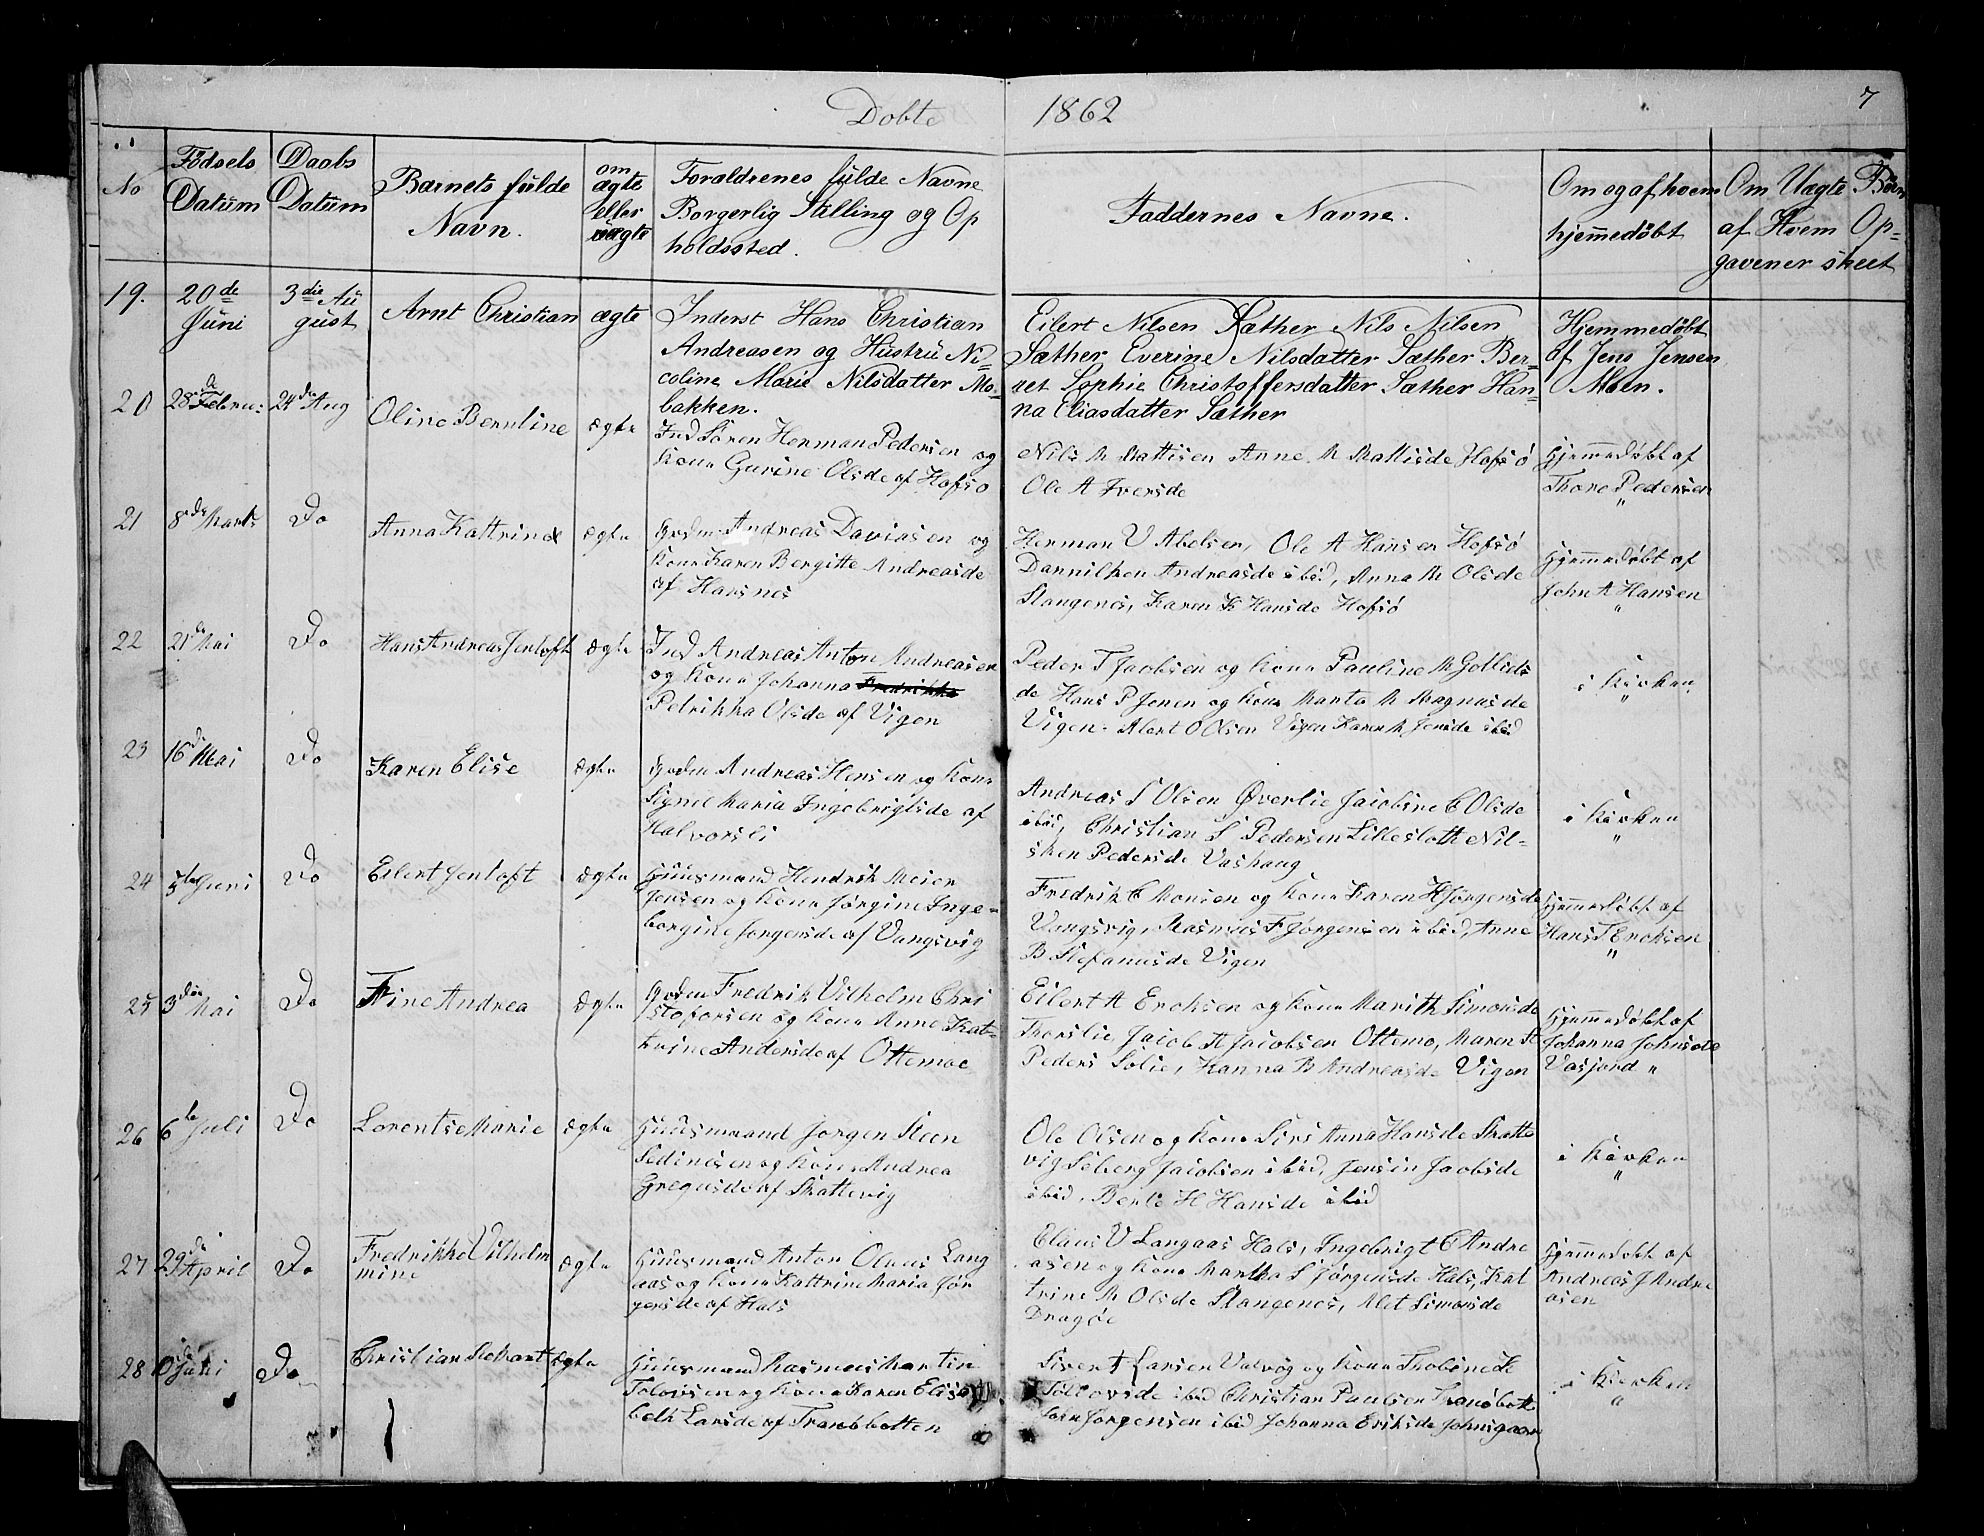 Dobte 1862 7
No
Födsels Datum
Daabs Datum
Barnets fulde Navn.
om ægte eller uægte
Foraldrenes fulde Navne
Borgerlig Stilling og Op
holdssted.
Faddernes Navne.
Om og af hvem
hjemmedöbt
Om Uægte Börn
af Hvem Op-
gavener skeet
19. 20de Juni 3die August Arnt Christian ægte
Inderst Hans Christian
Andreasen og Hustru Ni-
coline Marie Nilsdatter Mo-
bakken.
Eilert Nilsen Sæther Nils Nilsen
Sæther Everine Nilsdatter Sæther Ber-
net Sophie Christoffersdatter Sæther Han-
na Eliasdatter Sæther
Hjemmedöbt
af Jens Jensen
Moen.
20 28de Febru: 24de Aug Oline Berntine ægte
Ind Sören Herman Pedersen og
Kone Gurine Olsde af Hofsö
Nils M Mattisen Anne M Mattisde Hofsö
Ole A Iversde
Hjemmedöbt af
Thore Pedersen
"
21 8de Marts Do Anna Kattrine ægte
Grdm Andreas Daviasen og
Kone Karen Bergitte Andreasde
af Hansnes
Herman U Abelsen, Ole A Hansen Hofsö
Danniken Andreasde ibid, Anna M Olsde
Stangenes, Karen K Hansde Hofsö
Hjemmedöbt af
John A Hansen
"
22 21de Mai Do Hans Andreas Jentoft ægte
Ind Andreas Anton Andreasen
og Kone Johanna Fredrikke
Petrikka Olsde af Vigen
Peder T Jacobsen og Kone Pauline M Gotlids
de Hans P Jensen og Kone Marta M Magnusde
Vigen. Alert O Olsen Vigen Karen M Jensde ibid
i Kirken
"
23 16de Mai Do Karen Elise ægte
Grdm Andreas Hensen og Kone
Signil Maria Ingebrigtsde af
Halvorsli
Andreas S Olsen Øverlie Jacobine C Olsde
ibid, Christian S Pedersen Lilleslotte Nil-
sken Pedersde Vashaug
i Kirken
"
24 5te Juni Do Eilert Jentoft ægte
Huusmand Hendrik Meier
Jensen og Kone Jörgine Inge-
borgine Jörgensde af Vangsvig
Fredrik C Monsen og Kone Karen H Jörgensde
Vangsvig, Rasmus F Jörgensen ibid, Anne
B Stefanusde Vigen
Hjemmedöbt af
Hans T Ericksen
"
25 3die Mai Do Fine Andrea ægte
Grdm Fredrik Vilhelm Chri
stofersen og Kone Anne Kat-
trine Andersde af Ottemoe
Eilert A Ericksen og Kone Marith Simonsde
Thorslie, Jacob A Jacobsen Ottemo, Maren A
Peders Solie, Hanna B Andreasde Vigen
Hjemmedöbt af
Johanna Johnsde
Vasjord "
26 6te Juli Do Lorentse Marie ægte
Huusmand Jorgen Steen
Sedinisen og Kone Andrea
Gregusde af Skattevig
Ole Olsen og Kone Sirs Anna Hansde Skatte
vig Soberg Jacobsen ibid, Jensin Jacobsde
ibid, Bente H Hansde ibid
i Kirken
"
27 29de April Do Fredrikke Vilhelm
mine ægte
Huusmand Anton Olaus Lang
aas og Kone Kattrine Maria Jör
gensde af Hals
Claus V Langaas Hals, Ingebrigt C Andre
asen og Kone Martha S Jörgensde Hals, Kat
trine M Olsde Stangenes, Alet Simonsde
Dragöe
Hjemmedöbt af
Andreas J Andre
asen
28 Juli Do Christian Rikart ægte
Huusmand Rasmus Martin
Tolovsen og Kone Karen Elisa
beth Larsde af Tranöbotten
Sivert Larsen Valvog og Kone Thobine K
Tollovsde ibid Christian Paulsen Tranöbott
Sörn Jörgensen ibid Johanna Eriksde Johnsgaarn
i Kirken
"